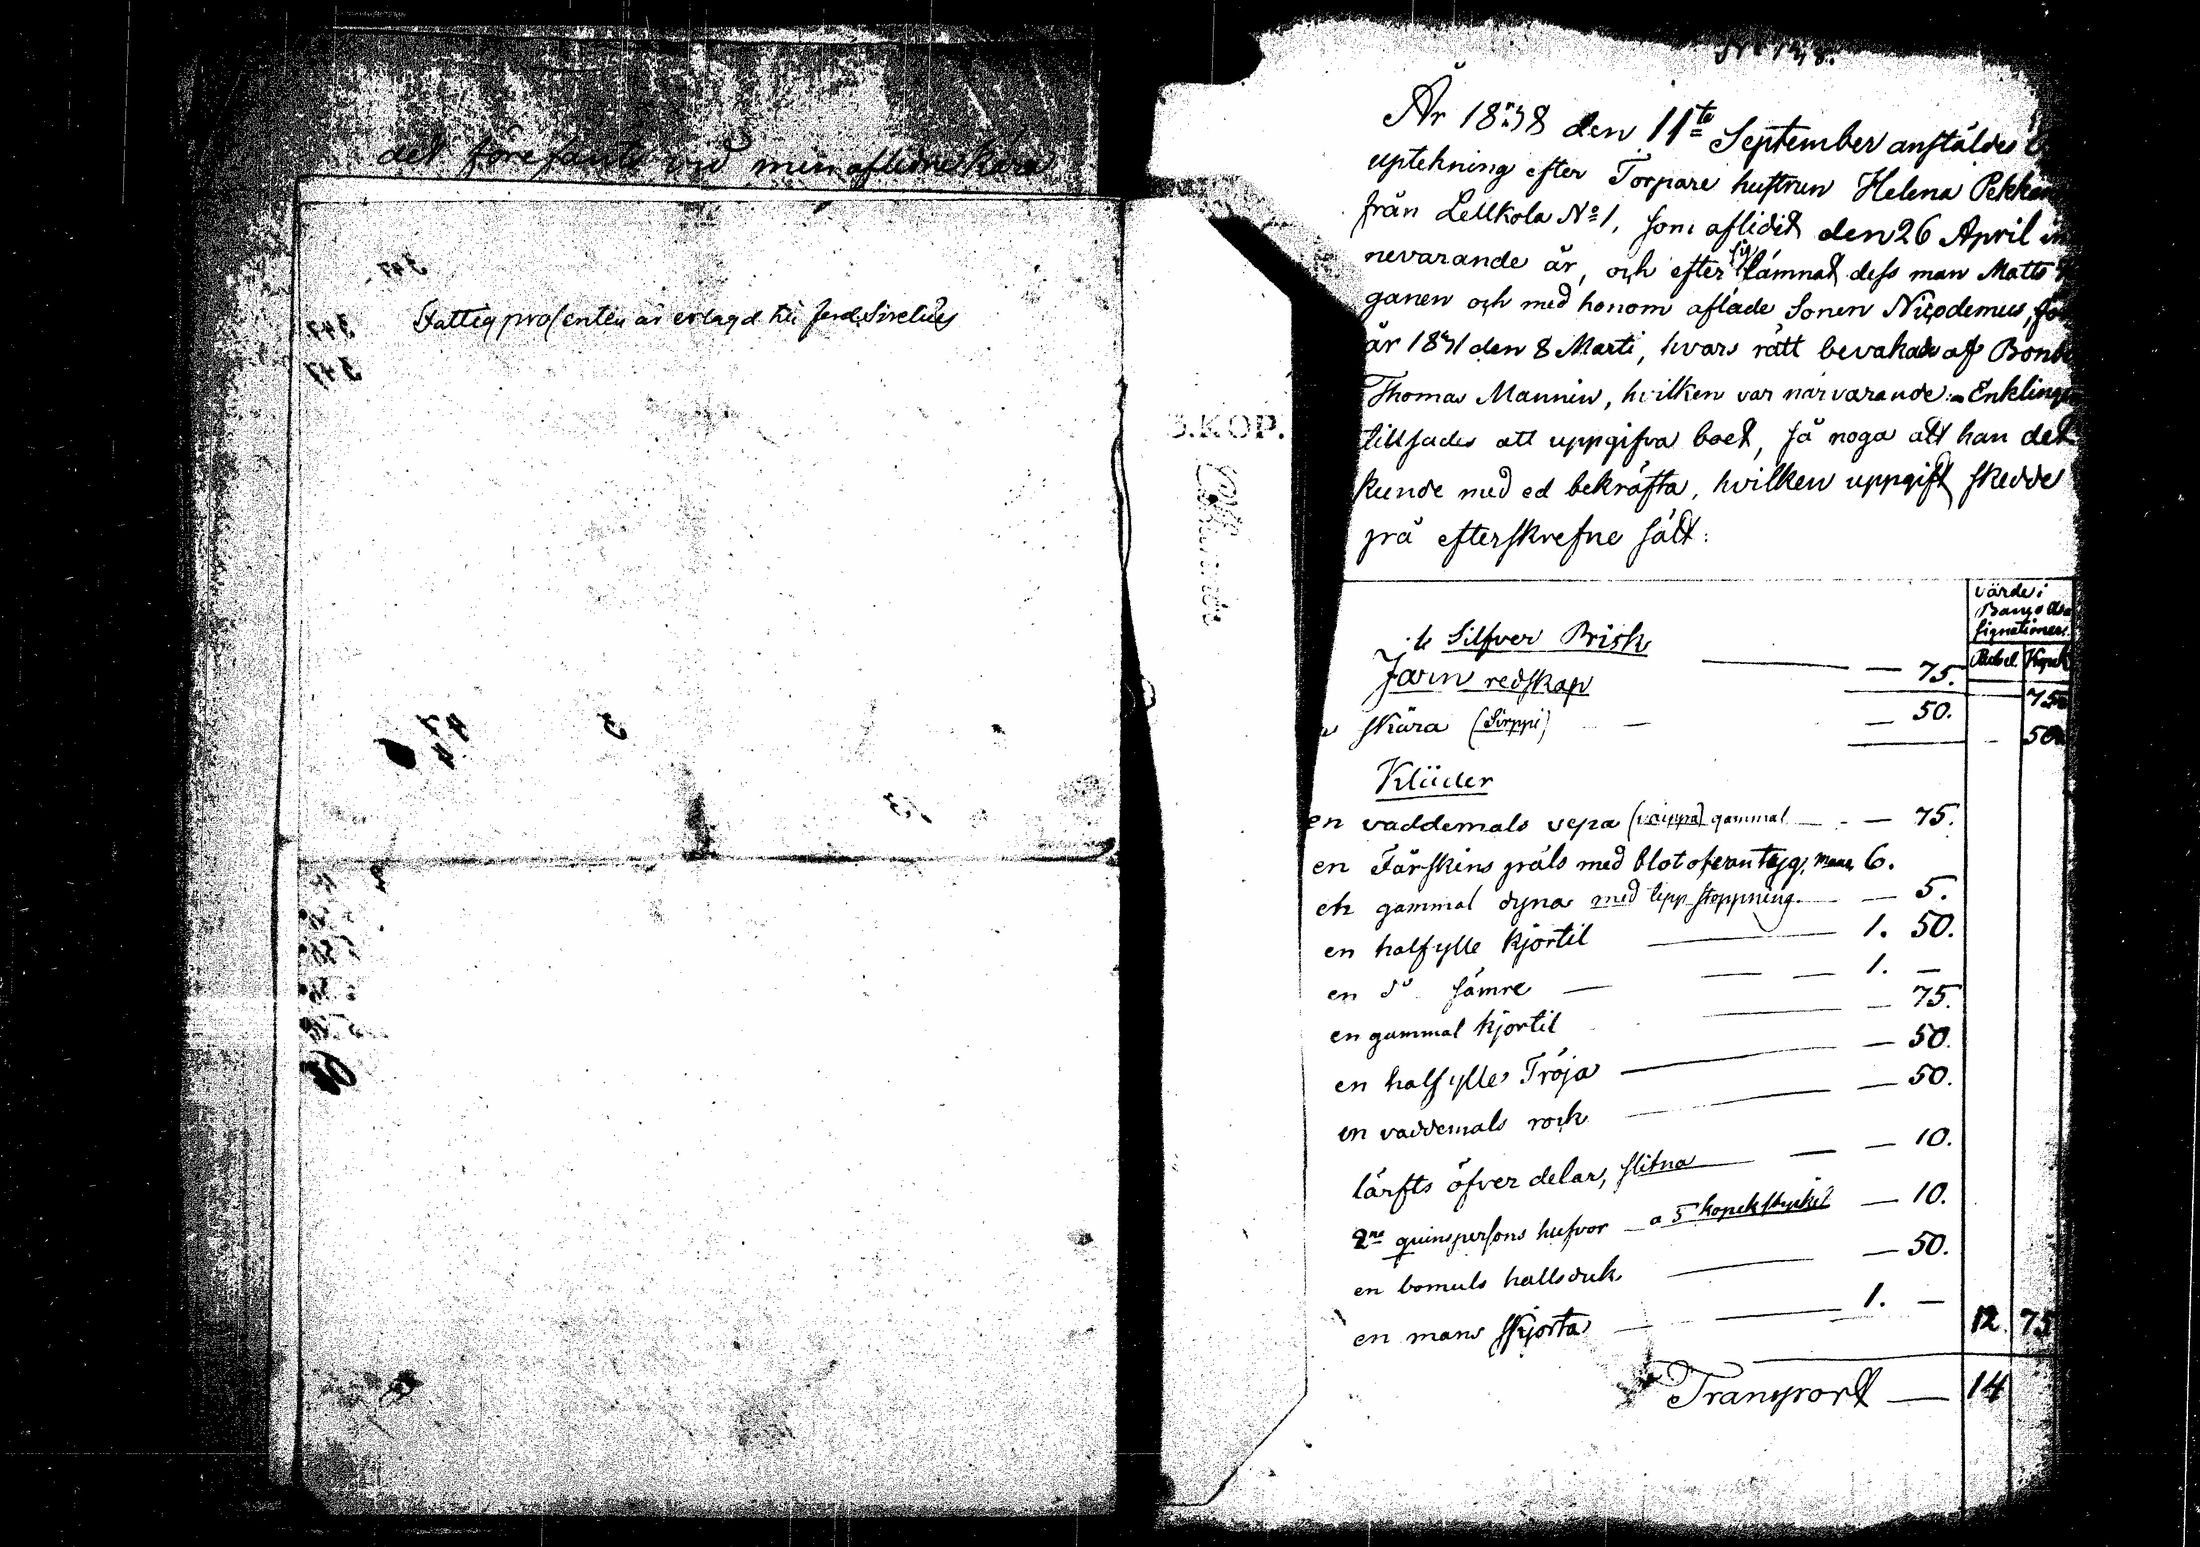 det förefants vid min aflidne kära
Fattigprosenten är erlagd till Ferd. Sirelius
3.KOP.
År 1838 den 11te September anstäldes
uptekning efter Torpare hustrun Helena Pekka
från Lellkola No 1, som aflidit den 26 April in
nevarande år, och efter sig lämnat dess man Matts
ganen och med honom aflade Sonen Nicodemus, fö
år 1831 den 8 Marti, hvars rätt bevakades af Bond
Thomas Mannin, hvilken var närvarande. Enkling
tillsades att uppgifva boet, så noga att han det
kunde med ed bekräfta, hvilken uppgift skedde
på efterskrefne sätt:
värde i
Banco As
signationer
Rubel Kopek
Silfver Brisk — 75.
75
Jarn redskap
skära (Sirppi) — — 50.
50
Kläder
en vaddemals vepa (vaippa) gammal — — 75.
en Fårskins päls med blot ofvantyg, mans 6.
en gammal dyna med lepp stoppning — 5.
en halfylle kjortil — 1. 50.
en do sämre — 1. —
en gammal kjortil — 75.
en halfylle Tröja — 50.
en vaddemals rock — 50.
lärfts öfverdelar, slitna — 10.
2ne quinspersons hufvor a 5 kopek stycket — 10.
en bomuls hallsduk — 50.
en mans skjorta — 1. —
12 75
Transport — 14